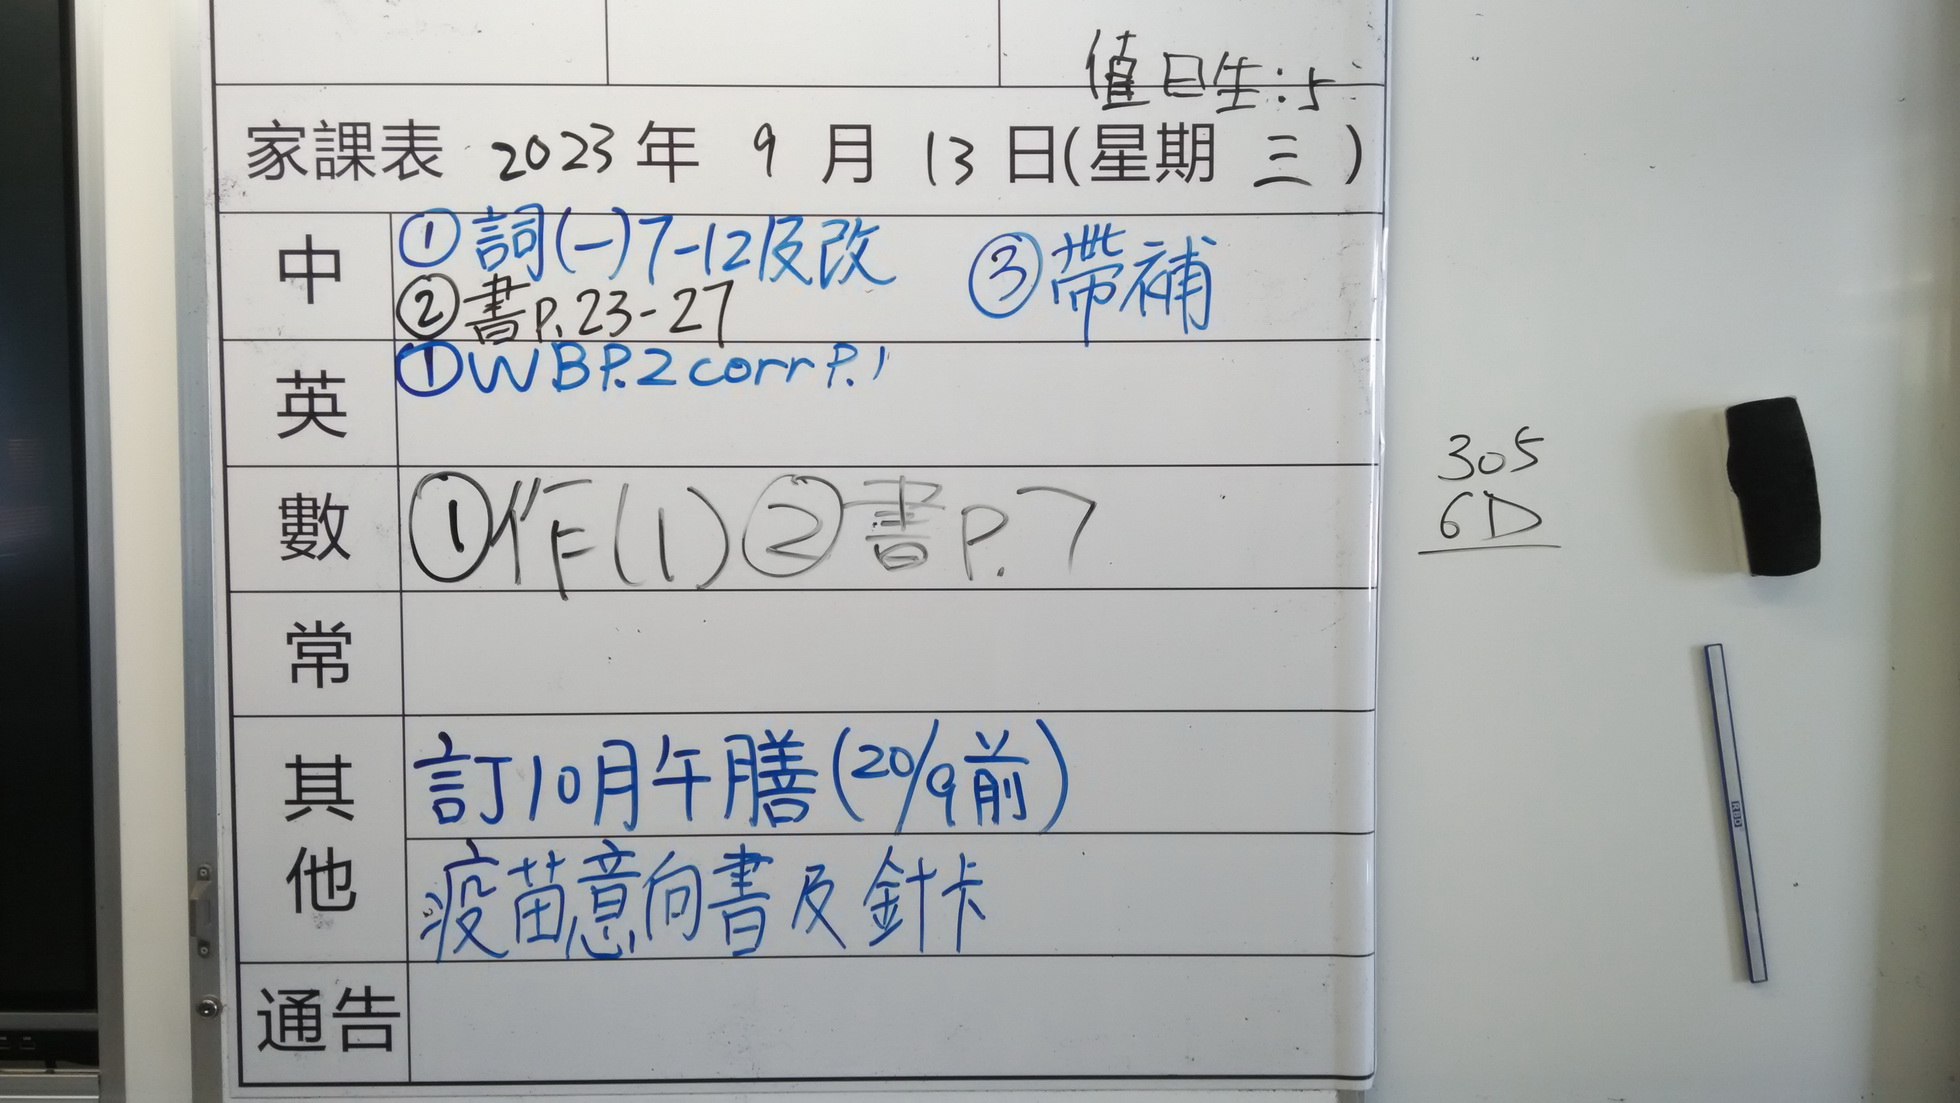 值日生:5
家課表 2023年 9月 13日(星期 三)
中
①詞(一)7-12及改 ③帶補
②書P.23-27
英
①WB P.2 corr P.1
數
①作(1)②書P.7
常
其他
訂10月午膳(20/9前)
疫苗意向書及針卡
通告
305
6D